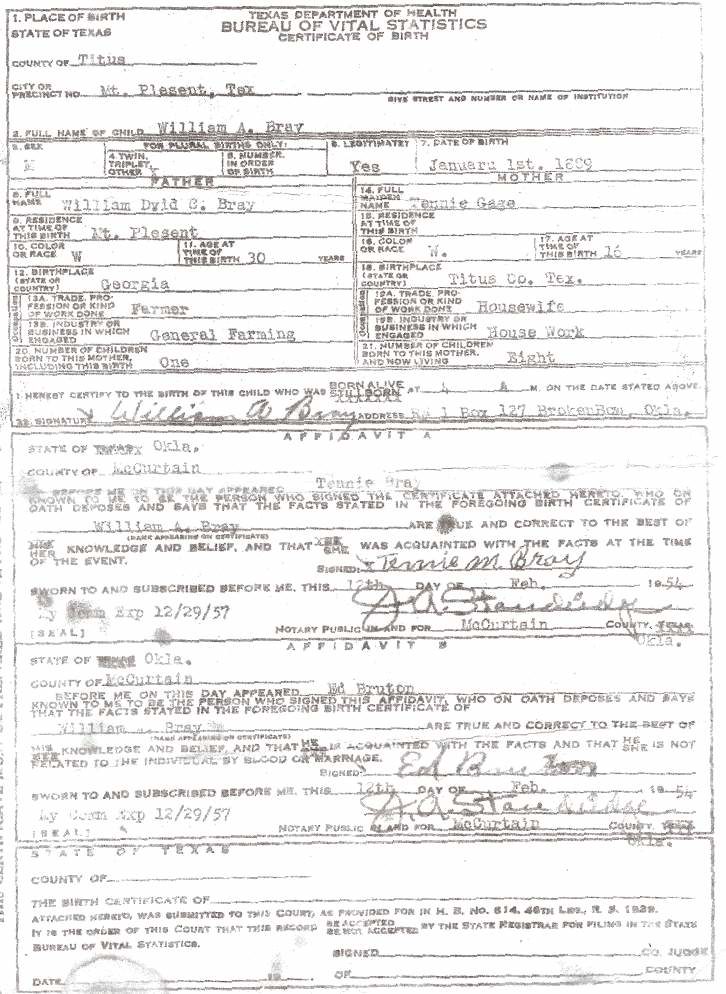 1. PLACE OF BIRTH
STATE OF TEXAS
TEXAS DEPARTMENT OF HEALTH
BUREAU OF VITAL STATISTICS
CERTIFICATE OF BIRTH
COUNTY OF Titus
CITY OR PRECINCT NO. Mt. Plesent, Tex
GIVE STREET AND NUMBER OR NAME OF INSTITUTION
2. FULL NAME OF CHILD William A. Bray
3. SEX
FOR PLURAL BIRTHS ONLY:
4. TWIN, TRIPLET, OTHER
5. NUMBER, IN ORDER OF BIRTH
6. LEGITIMATE? Yes
7. DATE OF BIRTH January 1st. 1899
FATHER
8. FULL NAME William Dvid C. Bray
9. RESIDENCE AT TIME OF THIS BIRTH Mt. Plesent
10. COLOR OR RACE W
11. AGE AT TIME OF THIS BIRTH 30 YEARS
12. BIRTHPLACE (STATE OR COUNTRY) Georgia
13A. TRADE, PROFESSION OR KIND OF WORK DONE Farmer
13B. INDUSTRY OR BUSINESS IN WHICH ENGAGED General Farming
20. NUMBER OF CHILDREN BORN TO THIS MOTHER, INCLUDING THIS BIRTH One
MOTHER
14. FULL MAIDEN NAME Tennie Gage
15. RESIDENCE AT TIME OF THIS BIRTH
16. COLOR OR RACE W.
17. AGE AT TIME OF THIS BIRTH 16 YEARS
18. BIRTHPLACE (STATE OR COUNTRY) Titus Co. Tex.
19A. TRADE, PROFESSION OR KIND OF WORK DONE Housewife
19B. INDUSTRY OR BUSINESS IN WHICH ENGAGED House Work
21. NUMBER OF CHILDREN BORN TO THIS MOTHER, AND NOW LIVING Eight
I HEREBY CERTIFY TO THE BIRTH OF THIS CHILD WHO WAS BORN ALIVE STILLBORN AT 4 A M. ON THE DATE STATED ABOVE
22. SIGNATURE William A Bray ADDRESS 1 Box 127 BrokenBow, Okla.
AFFIDAVIT A
STATE OF TEXAS Okla.
COUNTY OF McCurtain
BEFORE ME ON THIS DAY APPEARED Tennie Bray
KNOWN TO ME TO BE THE PERSON WHO SIGNED THE CERTIFICATE ATTACHED HERETO, WHO ON
OATH DEPOSES AND SAYS THAT THE FACTS STATED IN THE FOREGOING BIRTH CERTIFICATE OF
William A. Bray ARE TRUE AND CORRECT TO THE BEST OF
(NAME APPEARING ON CERTIFICATE)
HIS HER KNOWLEDGE AND BELIEF, AND THAT SHE WAS ACQUAINTED WITH THE FACTS AT THE TIME
OF THE EVENT.
SIGNED: Tennie M. Bray
SWORN TO AND SUBSCRIBED BEFORE ME, THIS 12th DAY OF Feb. 1954
My Comm Exp 12/29/57
[SEAL]
NOTARY PUBLIC IN AND FOR McCurtain COUNTY, TEXAS
Okla.
AFFIDAVIT B
STATE OF TEXAS Okla.
COUNTY OF McCurtain
BEFORE ME ON THIS DAY APPEARED Ed Bruton
KNOWN TO ME TO BE THE PERSON WHO SIGNED THIS AFFIDAVIT, WHO ON OATH DEPOSES AND SAYS
THAT THE FACTS STATED IN THE FOREGOING BIRTH CERTIFICATE OF
William A. Bray ARE TRUE AND CORRECT TO THE BEST OF
(NAME APPEARING ON CERTIFICATE)
HIS HER KNOWLEDGE AND BELIEF, AND THAT HE IS ACQUAINTED WITH THE FACTS AND THAT HE SHE IS NOT
RELATED TO THE INDIVIDUAL BY BLOOD OR MARRIAGE.
SIGNED: Ed Bruton
SWORN TO AND SUBSCRIBED BEFORE ME, THIS 12th DAY OF Feb. 1954
My Comm Exp 12/29/57
[SEAL]
NOTARY PUBLIC IN AND FOR McCurtain COUNTY, TEXAS
Okla.
STATE OF TEXAS
COUNTY OF
THE BIRTH CERTIFICATE OF
ATTACHED HERETO, WAS SUBMITTED TO THIS COURT, AS PROVIDED FOR IN H. B. NO. 614, 46TH LEG., R. S. 1939.
IT IS THE ORDER OF THIS COURT THAT THIS RECORD BE ACCEPTED BE NOT ACCEPTED BY THE STATE REGISTRAR FOR FILING IN THE STATE
BUREAU OF VITAL STATISTICS.
SIGNED CO. JUDGE
DATE 19 OF COUNTY